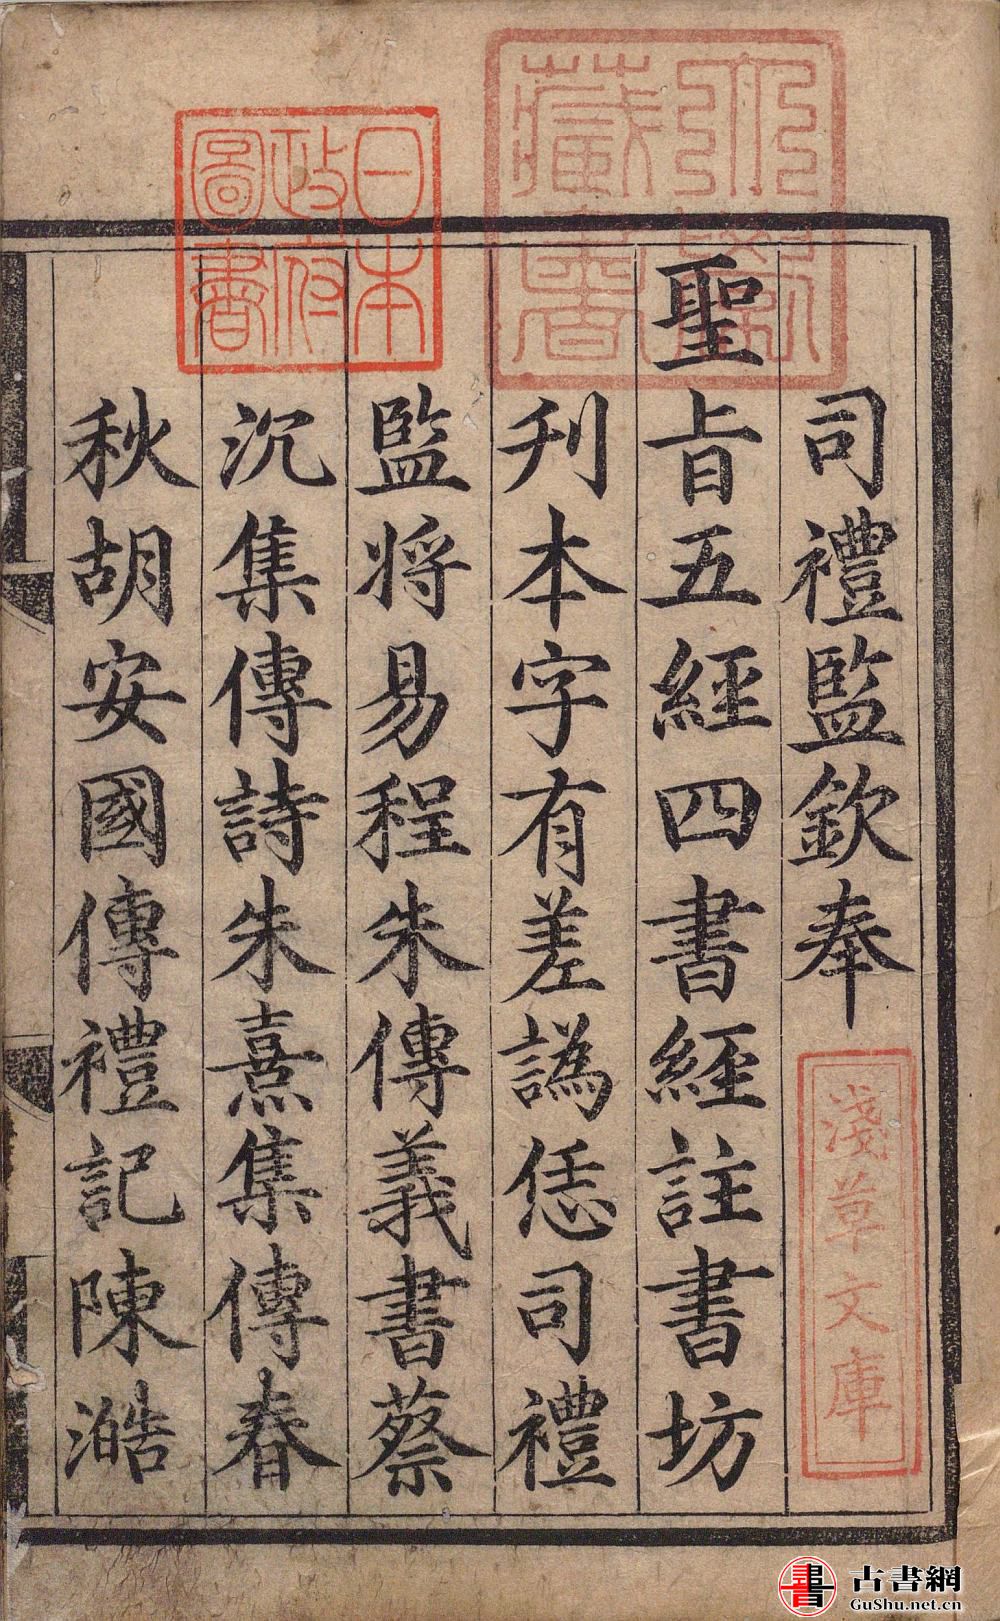 司禮監欽奉
聖旨五經四書經註書坊
刋本字有差譌恁司禮
監将易程朱傳義書蔡
沉集傳詩朱熹集傳春
秋胡安國傳禮記陳澔
淺草文庫
日本
政府
圖書
藏書
古書網
GuShu.net.cn